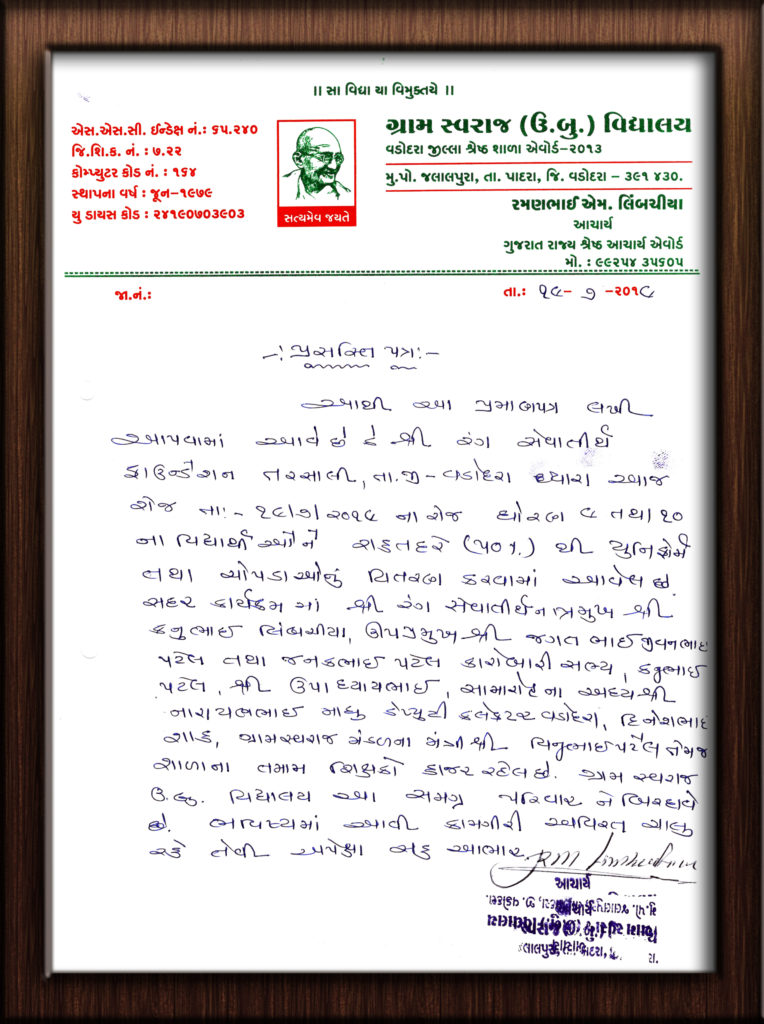 ॥ સા વિદ્યા યા વિમુક્તયે ॥
એસ.એસ.સી. ઈન્ડેક્ષ નં.: ૬૫.૨૪૦
જિ.શિ.ક. નં. : ૭.૨૨
કોમ્પ્યુટર કોડ નં. : ૧૬૪
સ્થાપના વર્ષ : જૂન-૧૯૭૯
યુ ડાયસ કોડ : ૨૪૧૯૦૭૦૩૯૦૩
સત્યમેવ જયતે
ગ્રામ સ્વરાજ (ઉ.બુ.) વિદ્યાલય
વડોદરા જીલ્લા શ્રેષ્ઠ શાળા એવોર્ડ-૨૦૧૩
મુ.પો. જલાલપુરા, તા. પાદરા, જિ. વડોદરા - ૩૯૧ ૪૩૦.
રમણભાઈ એમ. લિંબચીયા
આચાર્ય
ગુજરાત રાજ્ય શ્રેષ્ઠ આચાર્ય એવોર્ડ
મો. : ૯૯૨૫૪ ૩૫૬૦૫
જા.નં.:
તા.: ૧૯- ૭ -૨૦૧૯
-: પ્રસક્તિ પત્ર:-
આથી આ પ્રમાણપત્ર લખી
આપવામાં આવે છે કે શ્રી રંગ સેવાતીર્થ
ફાઉન્ડેશન તરસાલી, તા.જી - વડોદરા દ્વારા આજ
રોજ તા:- ૧૯/૭/૨૦૧૯ ના રોજ ધોરણ ૯ તથા ૧૦
ના વિદ્યાર્થીઓને રાહતદરે (૫૦%) થી યુનિફોર્મ
તથા ચોપડાઓનું વિતરણ કરવામાં આવેલ છે.
સદર કાર્યક્રમ માં શ્રી રંગ સેવાતીર્થના પ્રમુખ શ્રી
કનુભાઈ લિંબચીયા, ઉપપ્રમુખ શ્રી જગત ભાઈ જીવનભાઈ
પટેલ તથા જનકભાઈ પટેલ કારોબારી સભ્ય, કનુભાઈ
પટેલ, શ્રી ઉપાધ્યાયભાઈ, સામારોહના અધ્યક્ષશ્રી
નારાયણભાઈ માધુ ડેપ્યુટી કલેક્ટર વડોદરા, દિનેશભાઈ
શાહ, ગ્રામસ્વરાજ મંડળના મંત્રીશ્રી વિનુભાઈ પટેલ તેમજ
શાળાના તમામ શિક્ષકો હાજર રહેલ છે. ગ્રામ સ્વરાજ
ઉ.બુ. વિદ્યાલય આ સમગ્ર પરિવાર ને બિરદાવે
છે. ભવિષ્યમાં આવી કામગીરી અવિરત ચાલુ
રહે તેવી અપેક્ષા સહ આભાર.
આચાર્ય